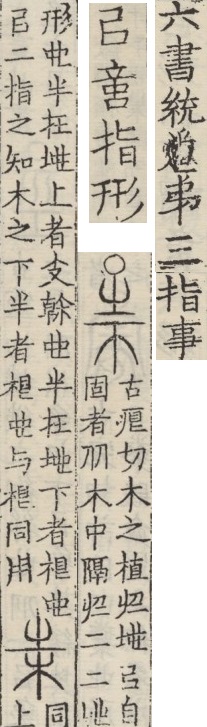 六書統卷弟三 指事
㠯𠶷指形
古痕切木之植於地㠯自
固者从木中隔於二二地
形也半在地上者支榦也半在地下者根也
㠯二指之知木之下半者根也与根同用
同
上